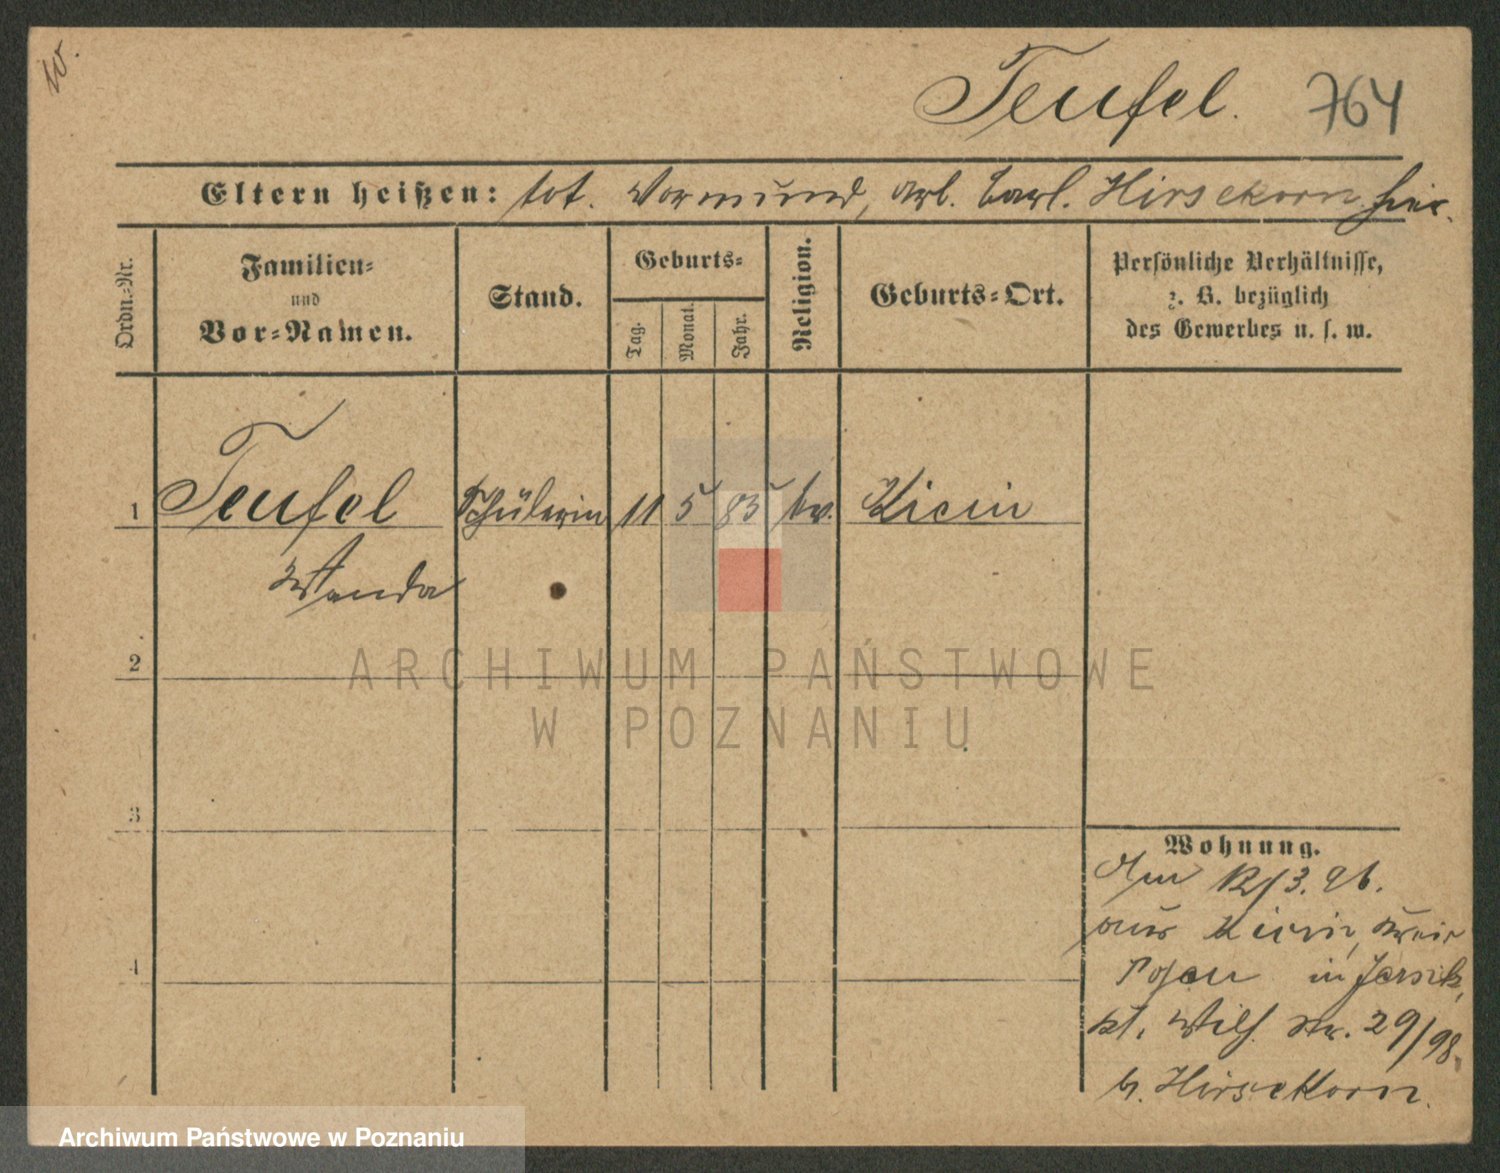 w.
Teufel. 764
Eltern heißen: tot. Vormund, Arb. Carl. Hirsekorn hier.
Ordn.-Nr.
Familien-
und
Vor-Namen.
Stand.
Geburts-
Tag.
Monat.
Jahr.
Religion.
Geburts-Ort.
Persönliche Verhältnisse,
z. B. bezüglich
des Gewerbes u. s. w.
1 Teufel Schülerin 11 5 85 ev. Kicin
Wanda
2
3
4
Wohnung.
Am 12/3. 96.
aus Kicin, Kreis
Posen in Jersitz,
kl. Wilh. Str. 29/98.
b. Hirsekorn.
ARCHIWUM PAŃSTWOWE
W POZNANIU
Archiwum Państwowe w Poznaniu